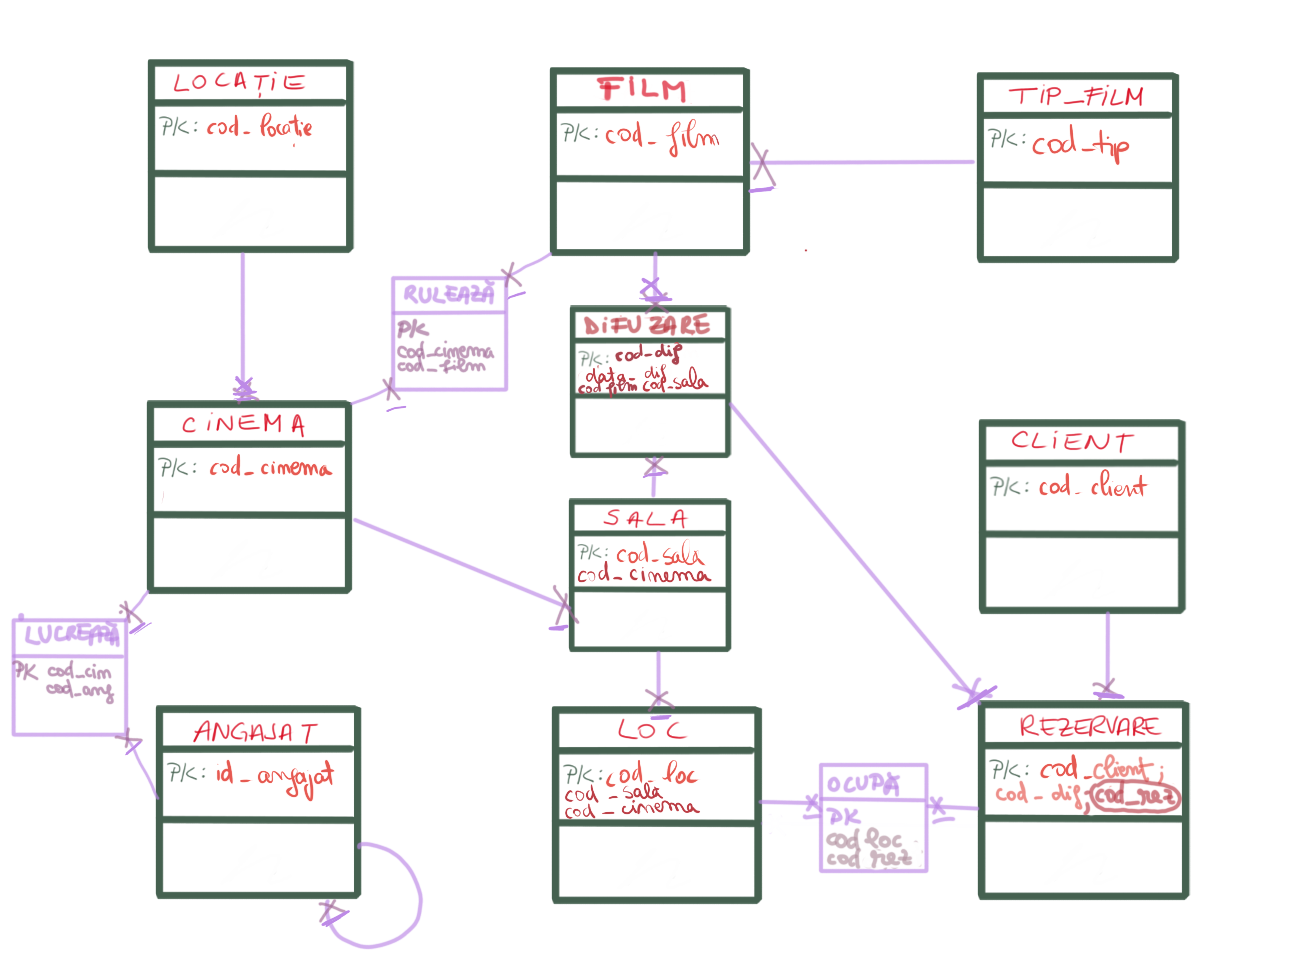 LOCAȚIE
PK: cod_locatie
FILM
PK: cod_film
TIP_FILM
PK: cod_tip
RULEAZĂ
PK
cod_cinema
cod_film
DIFUZARE
PK: cod_dif
data_dif
cod_film cod_sala
CINEMA
PK: cod_cinema
SALA
PK: cod_sala
cod_cinema
CLIENT
PK: cod_client
LUCREAZĂ
PK cod_cim
cod_ang
ANGAJAT
PK: id_angajat
LOC
PK: cod_loc
cod_sala
cod_cinema
OCUPĂ
PK
cod loc
cod rez
REZERVARE
PK: cod_client;
cod_dif; cod_rez